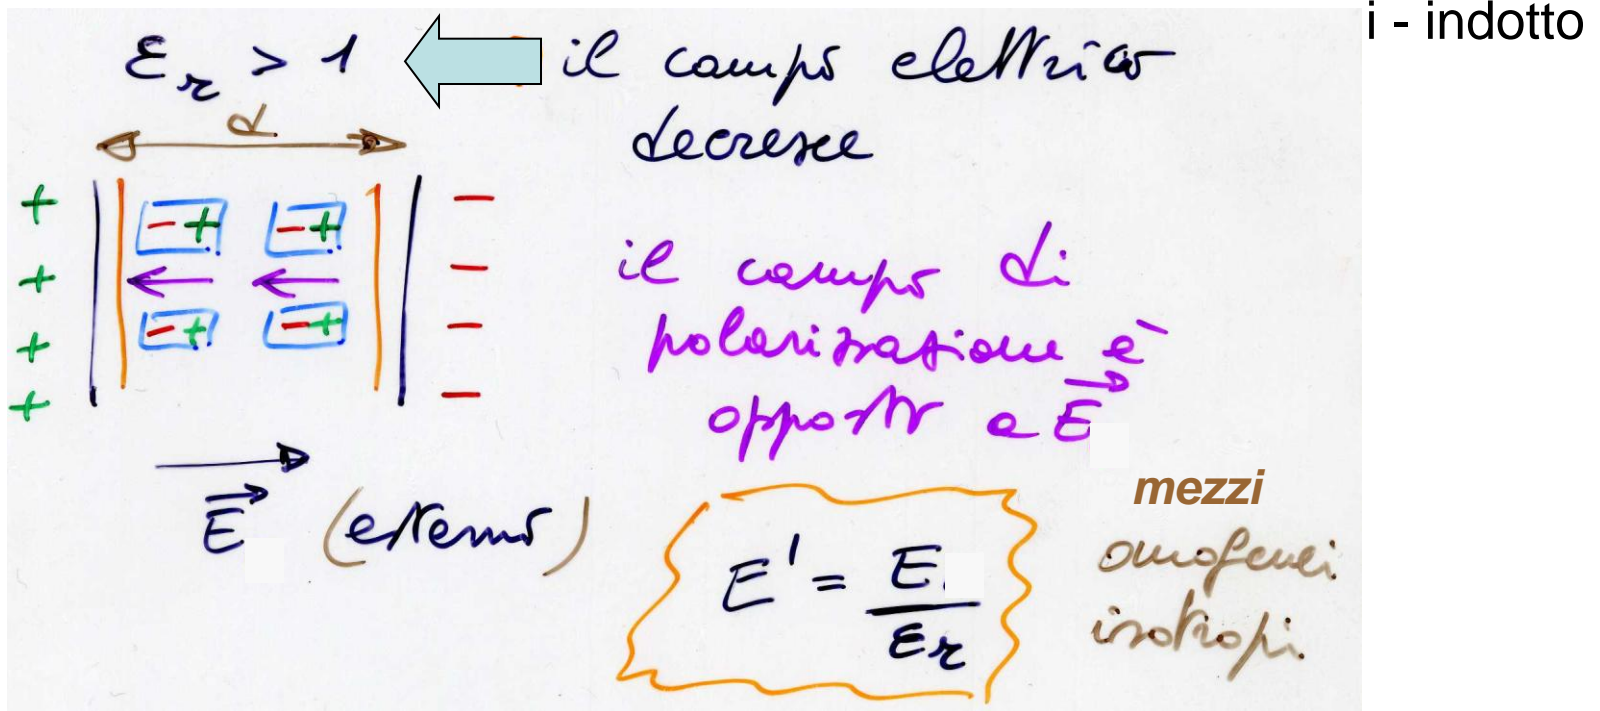 i - indotto
εr > 1 il campo elettrico
decresce
d
+ - + - + -
+ -
il campo di
+ - + - + -
polarizzazione è
+ -
opposto a E
E (esterno)
mezzi
omogenei
isotropi.
E' = E / εr